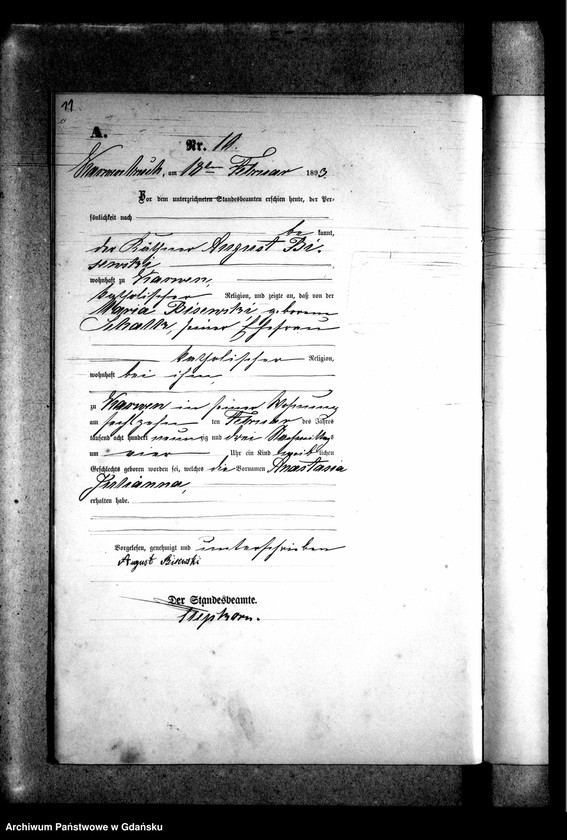 11
A.
Nr. 10.
Karwenbruch, am 18ten Februar 1893.
Vor dem unterzeichneten Standesbeamten erschien heute, der Per-
sönlichkeit nach
be kannt,
der Käthner August Bi-
sewski
wohnhaft zu Karwen,
katholischer Religion, und zeigte an, daß von der
Maria Bisewski, geborene
seiner Ehefrau
katholischer Religion,
wohnhaft bei ihm,
zu Karwen in seiner Wohnung
am sechszehn ten Februar des Jahres
tausend acht hundert neunzig und drei Nachmittags
um vier Uhr ein Kind weiblichen
Geschlechts geboren worden sei, welches die Vornamen Anastasia
Julianna,
erhalten habe.
Vorgelesen, genehmigt und unterschrieben
August Bisewski
Der Standesbeamte.
Archiwum Państwowe w Gdańsku